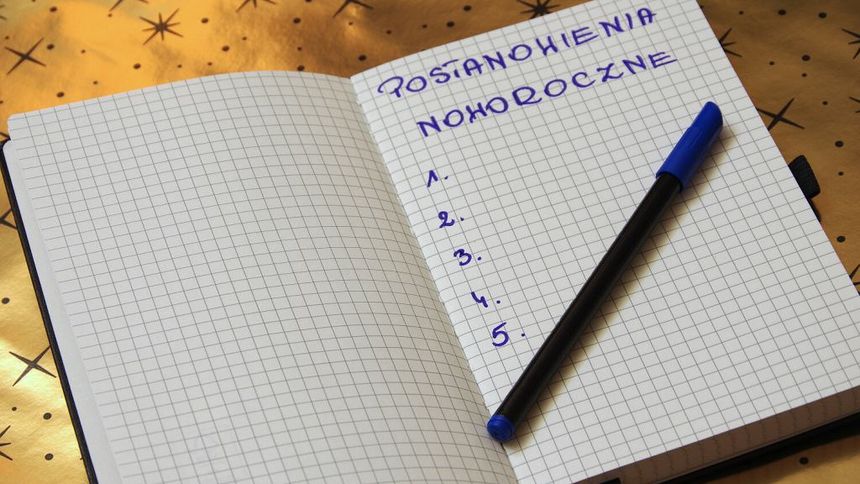 POSTANOWIENIA
NOWOROCZNE
1.
2.
3.
4.
5.